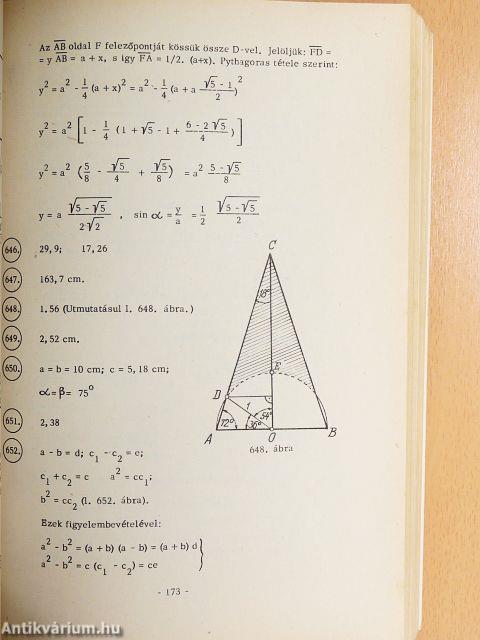 Az AB oldal F felezőpontját kössük össze D-vel. Jelöljük: FD =
= y AB = a + x, s így FA = 1/2. (a+x). Pythagoras tétele szerint:
y² = a² - 1/4 (a + x)² = a² - 1/4 (a + a (√5 - 1)/2)²
y² = a² [1 - 1/4 (1 + √5 - 1 + (6 - 2√5)/4)]
y² = a² (5/8 - √5/4 + √5/8) = a² (5 - √5)/8
y = a √(5 - √5)/(2√2) , sin α = y/a = 1/2 √(5 - √5)/2
646. 29,9; 17,26
647. 163,7 cm.
648. 1.56 (Utmutatásul l. 648. ábra.)
649. 2,52 cm.
650. a = b = 10 cm; c = 5,18 cm;
α = β = 75°
651. 2,38
652. a - b = d; c₁ - c₂ = e;
c₁ + c₂ = c a² = cc₁;
b² = cc₂ (l. 652. ábra).
Ezek figyelembevételével:
a² - b² = (a + b) (a - b) = (a + b) d
a² - b² = c (c₁ - c₂) = ce
C
18°
E
D
1
54°
72°
36°
A
O
B
648. ábra
- 173 -
Antikvárium.hu